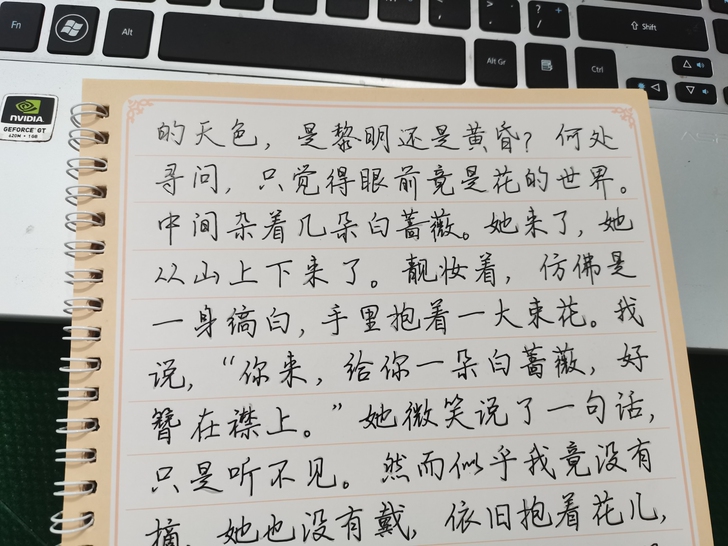 Fn
Alt
Alt Gr
Ctrl
Shift
?
/
NVIDIA
GEFORCE GT
620M • 1GB
的天色，是黎明还是黄昏？何处
寻问，只觉得眼前竟是花的世界。
中间杂着几朵白蔷薇。她来了，她
从山上下来了。靓妆着，仿佛是
一身缟白，手里抱着一大束花。我
说，“你来，给你一朵白蔷薇，好
簪在襟上。”她微笑说了一句话，
只是听不见。然而似乎我竟没有
摘，她也没有戴，依旧抱着花儿，